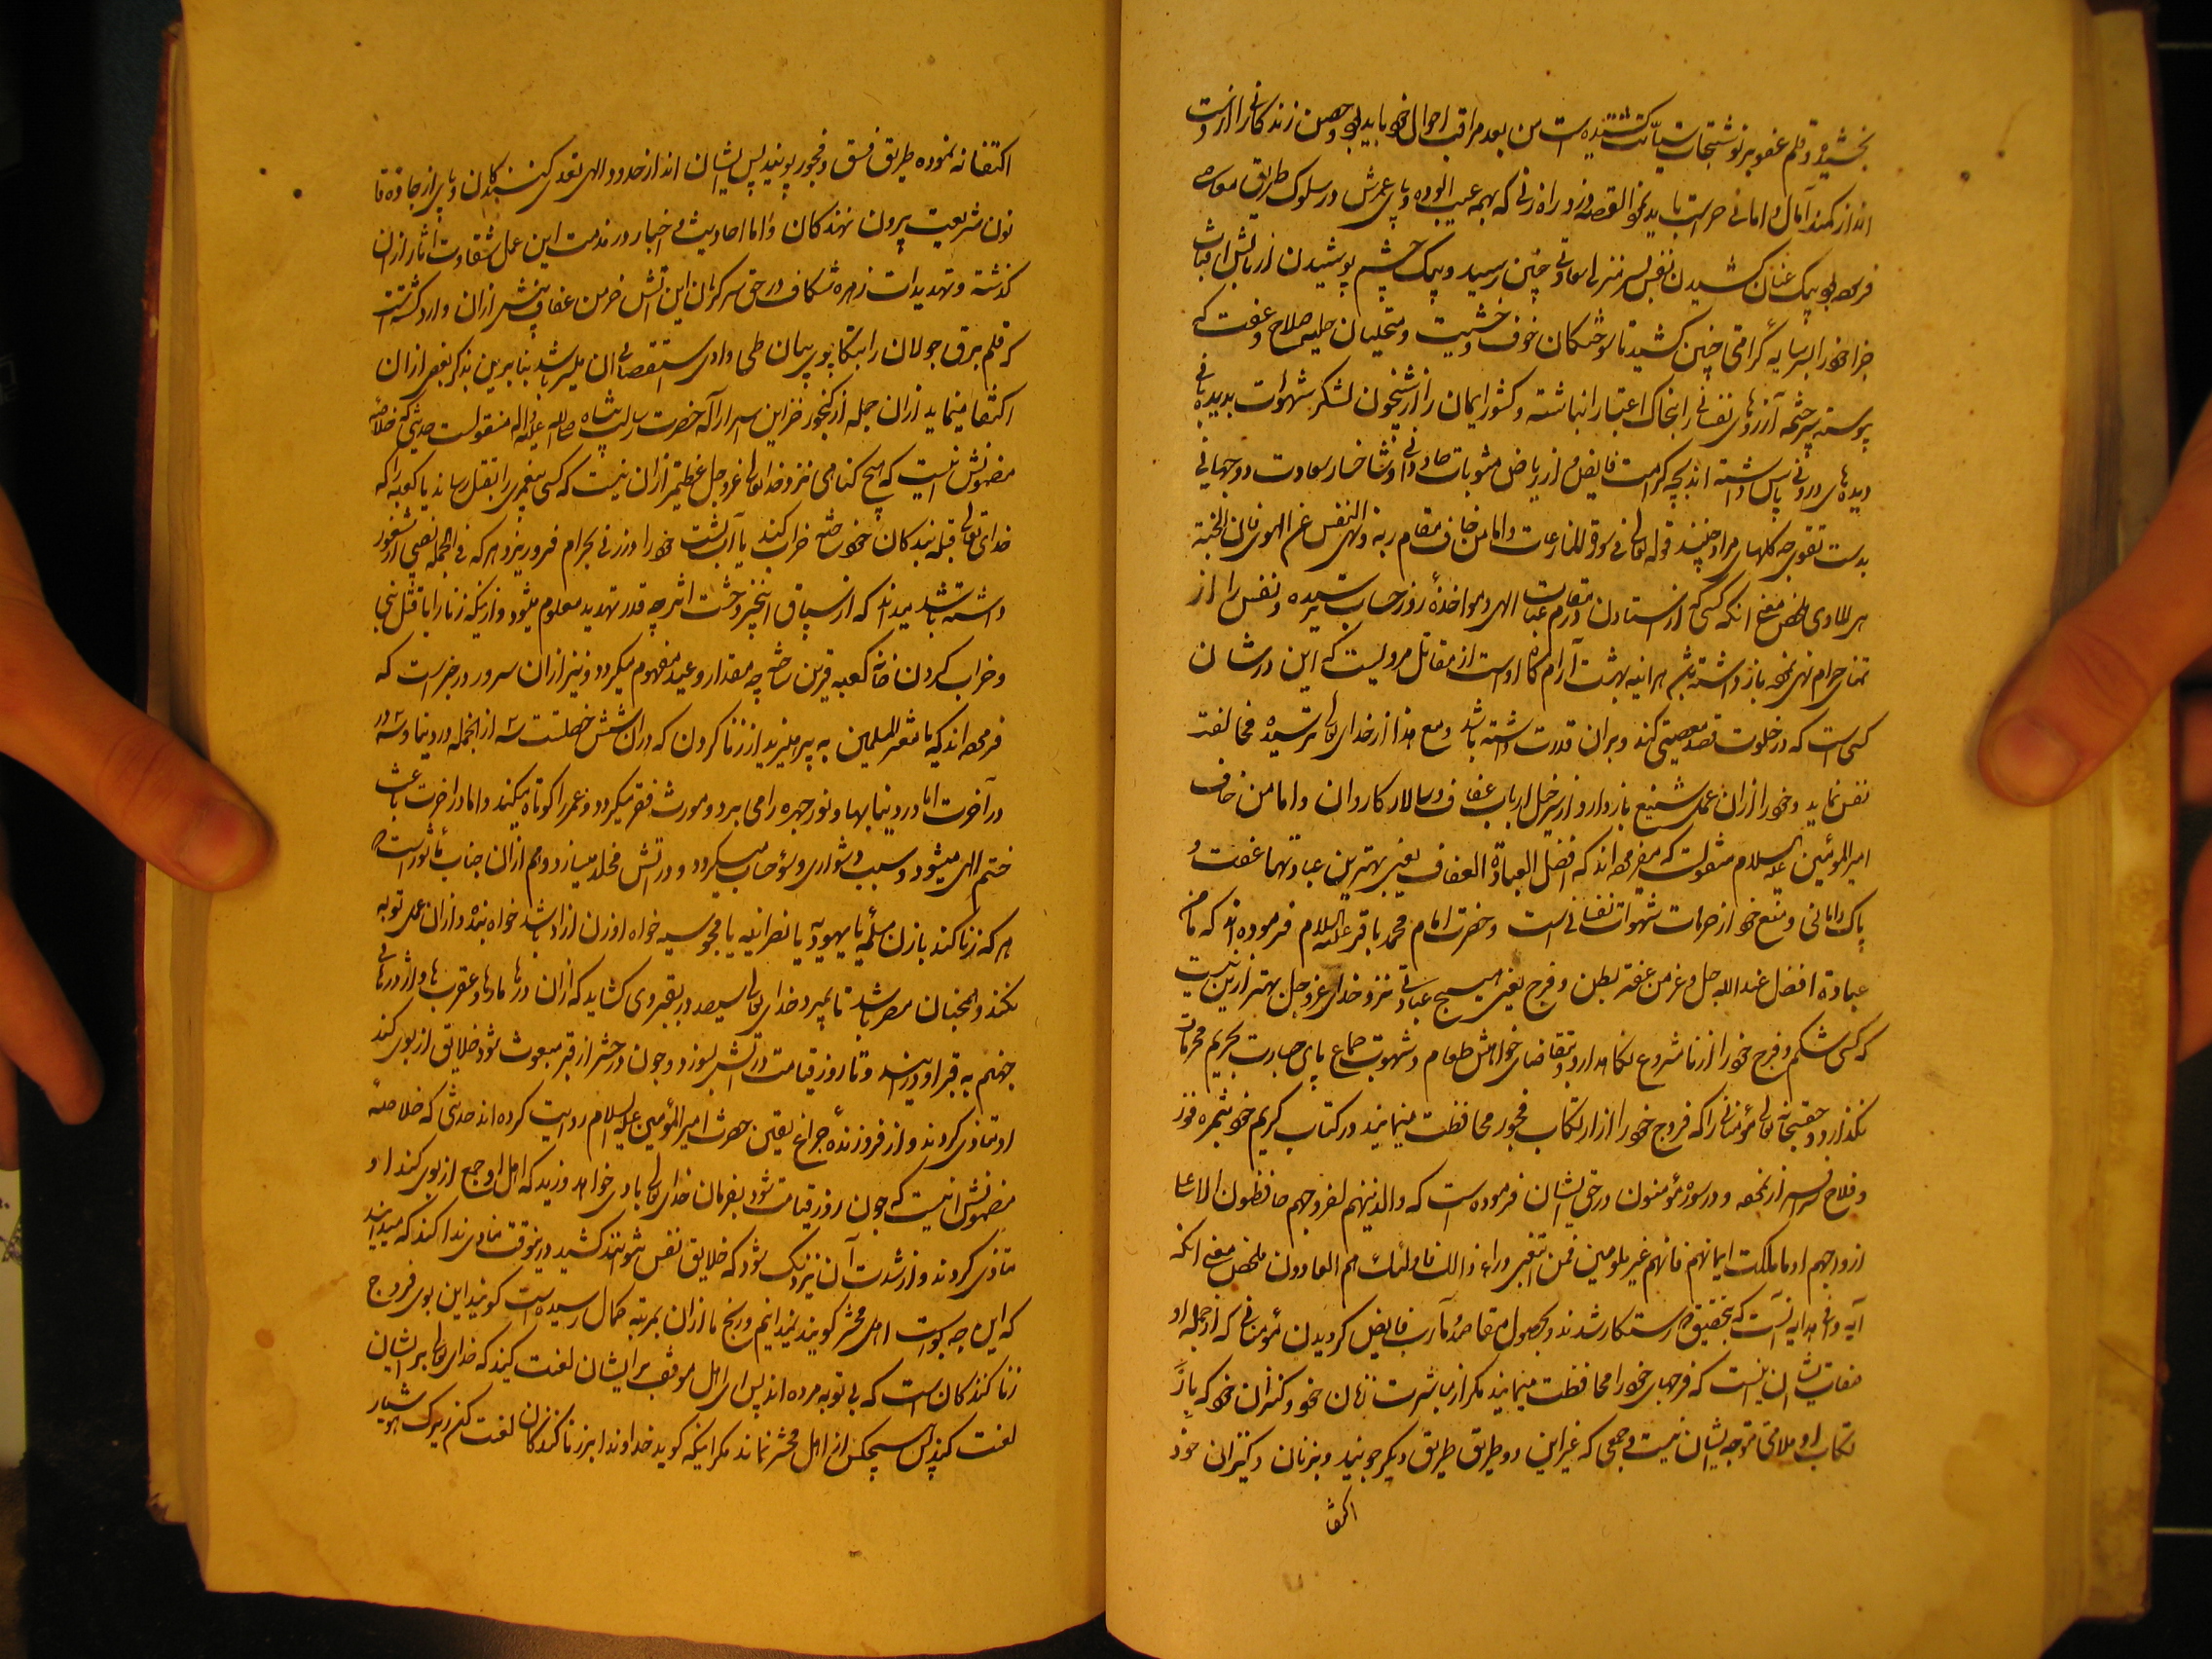 بخشیده و قلم عفو بر نوشتجات سیآتت کشیده است من بعد مراقب احوال خود باید بود و حصن زندگانی را از دست
انداز کمند آمال و امانی حراست باید نمود القصه دزد راه زنی که بهمه عیب آلوده و پای عمرش در سلوک طریق معاصی
فرسوده بود بیک عنان کشیدن نفس بسر منزل سعادتی چنین رسید و بیک چشم پوشیدن از بالش
جزا خود را بسایه گرامتی چنین کشید تا سوختگان خوف و خشیت و متحلیان حلیه صلاح و عفت که
پیوسته سرچشمه آرزوهای نفسانی را بخاک اعتبار انباشته و کشور ایمان را از شبیخون لشکر شهوات بدیده بانی
دیده های درونی پاس داشته اند بچه کرامت فایض و از ریاض مثوبات جاودانی و شاخسار سعادت دو جهانی
بدست تقوی چه گلهای مراد چینند قوله تعالی فی سورة النازعات و اما من خاف مقام ربه و نهی النفس عن الهوی فان الجنة
هی الماوی ملخص معنی آنکه کسی که از ایستادن در مقام عتاب الهی و مواخذهٔ روز حساب ترسیده و نفس را از
تمنای حرام نهی نموده باز داشته باشد هر اینه بهشت آرام گاه اوست از مقاتل مرویست که این در شان
کسی است که در خلوت قصد معصیتی کند و بران قدرت داشته باشد و مع هذا از خدای تعالی ترسیده مخالفت
نفس نماید و خود را از ان عمل شنیع باز دارد و از خیل ارباب عفاف و سالار کاروان و اما من خاف
امیر المؤمنین علیه السلام منقولست که میفرموده اند که افضل العبادة العفاف یعنی بهترین عبادتها عفت و
پاک دامانی و منع خود از حرمات شهوات نفسانی است و حضرت امام محمد باقر علیه السلام فرموده اند که ما من
عبادة افضل عند الله جل و عز من عفة بطن و فرج یعنی هیچ عبادتی نزد خدای عز و جل بهتر ازین نیست
که کسی شکم و فرج خود را از نامشروع نگاه دارد و بتقاضای خواهش طعام و شهوت جماع پای جسارت بحریم محرمات
نگذارد و حقسبحانه تعالی مؤمنانی را که فروج خود را از ارتکاب فجور محافظت مینمایند در کتاب کریم خود بثمره فوز
و فلاح سرافراز نموده و در سوره مؤمنون در حق ایشان فرموده است که والذینهم لفروجهم حافظون الا علی
ازواجهم او ما ملکت ایمانهم فانهم غیر ملومین فمن ابتغی وراء ذالک فاولئک هم العادون ملخص معنی آنکه
آیه وافی هدایه آنست که بتحقیق که رستگار شدند و بحصول مقاصد و مآرب فایض گردیدن مؤمنانی که از جمله
صفات ایشان اینست که فرجهای خود را محافظت مینمایند مگر از مباشرت زنان خود و کنیزان خود که باز
تکاب او ملامتی متوجه ایشان نیست و جمعی که غیر این دو طریق طریق دیگر جویند و بزنان و کنیزان خود
اکتفا
اکتفا نه نموده طریق فسق و فجور پویند پس ایشان انداز حدود الهی تعدی کنندگان و پای از جاده قا
نون شریعت بیرون نهندگان و اما احادیث و اخبار در مذمت این عمل شقاوت آثار از ان
گذشته و تهدیدات زهره شکاف در حق سرگرمان این آتش خرمن عفاف بیش از ان وارد گشته است
که قلم برق جولان را بتکاپوی بیان طی وادی استقصای ان میسر باشد بنا برین بذکر بعضی از ان
اکتفا مینماید از ان جمله از گنجور خزاین اسرار اله حضرت رسالت پناه صلی الله علیه و آله منقولست حدیثی که خلاصهٔ
مضمونش اینست که هیچ گناهی نزد خدای تعالی عز و جل عظیمتر از ان نیست که کسی پیغمبری را بقتل رساند یا کعبه را که
خدای تعالی قبله بندگان خود ساخته خراب کند یا آب پشت خود را در زنی بحرام فرو ریزد و هر که فی الجمله نصیبی از شعور
داشته باشد میداند که از سیاق اینخبر وحشت اثر چه قدر تهدید معلوم میشود و از اینکه زنا را با قتل نبی
و خراب کردن خانه کعبه قرین ساخته چه مقدار وعید مفهوم میگردد و نیز از ان سرور در خبر است که
فرموده اند که یا معشر المسلمین به پرهیزید از زنا کردن که در ان شش خصلتست سه از انجمله در دنیا و سه در
در آخرت اما در دنیا بها و نور چهره را می برد و مورث فقر میگردد و عمر را کوتاه میکند و اما در اخرت باعث
خشم الهی میشود و سبب دشواری و سؤ حساب میگردد و در آتش مخلد میسازد و هم از ان جناب مأثور است که
هر که زنا کند با زن مسلمه یا یهودیه یا نصرانیه یا مجوسیه خواه او زن ازاد باشد خواه بنده و از ان عمل توبه
نکند و همچنان مصر باشد تا بمیرد خدای تعالی سیصد در بقبر وی گشاید که از ان درها مارها و عقرب ها و اژدرهای
جهنم به قبر او درایند و تا روز قیامت در آتش بسوزد و چون در حشر از قبر مبعوث شود خلایق از بوی گند
او متاذی گردند و از فروزنده چراغ یقین حضرت امیر المؤمنین علیه السلام روایت کرده اند حدیثی که خلاصهٔ
مضمونش اینست که چون روز قیامت شود بفرمان خدای تعالی بادی خواهد وزید که اهل جمع از بوی گند او
متاذی گردند و از شدت آن نزدیک شود که خلایق نفس نتوانند کشید درینوقت منادی ندا کند که میدانید
که این چه بوست اهل محشر گویند نمیدانیم و رنج ما از ان بمرتبه کمال رسیده است گویند این بوی فروج
زنا کنندگان است که بی توبه مرده اند پس ای اهل موقف بر ایشان لعنت کنید که خدای تعالی بر ایشان
لعنت کند پس هیچکس از اهل محشر نماند مگر اینکه گوید خداوندا بر زنا کنندگان لعنت کن زیرک هوشیار